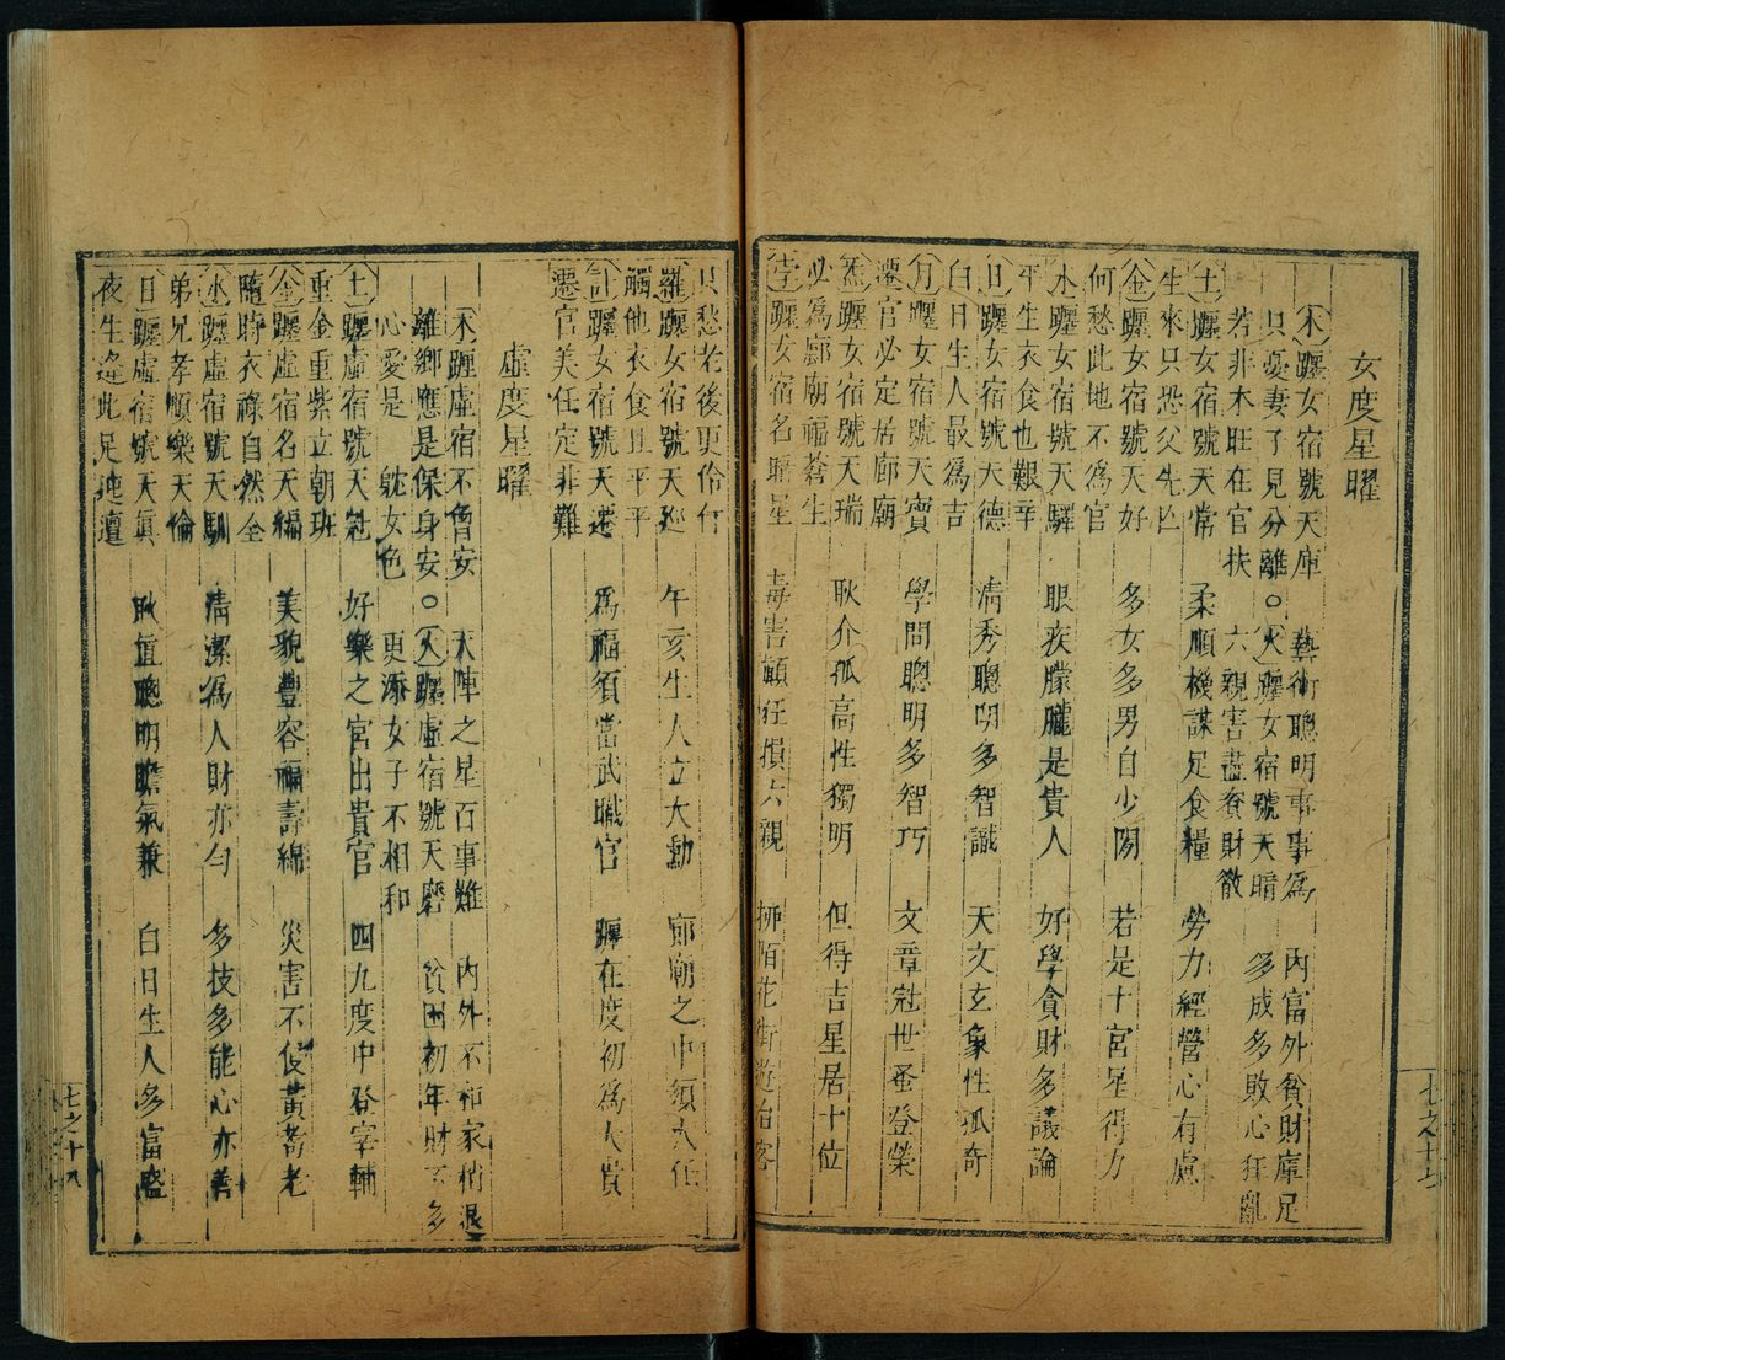 女度星曜
木躔女宿號天庫 藝術聰明事事為 內富外貧財庫足
只憂妻子見分離○火躔女宿號天暗 多成多敗心狂亂
若非木旺在官扶 六親害盡資財散
土躔女宿號天常 柔順機謀足食糧 勞力經營心有慮
生來只恐父先亡
金躔女宿號天好 多女多男自少陽 若是十宮星得力
何愁此地不為官
水躔女宿號天驛 眼疾朦朧是貴人 好學貪財多議論
平生衣食也艱辛
日躔女宿號天德 清秀聰明多智識 天文玄象性孤奇
白日生人最為吉
月躔女宿號天寶 學問聰明多智巧 文章冠世蚤登榮
遷官必定居廊廟
炁躔女宿號天瑞 耿介孤高性獨明 但得吉星居十位
必為廊廟福蒼生
孛躔女宿名暗星 毒害顛狂損六親 柳陌花街遊冶客
七之十七
只愁老後更伶仃
羅躔女宿號天 午亥生人立大勳 廊廟之中須大任
觸他衣食且平平
計躔女宿號天 為福須當武職官 躔在度初為大貴
遷官美任定非難
虛度星曜
木躔虛宿不曾安 天陣之星百事難 內外不和家稍退
離鄉應是保身安○火躔虛宿號天磨 貧困初年財不多
心愛是 躭女色 更添女子不相和
土躔虛宿號天 好樂之宮出貴官 四九度中登宰輔
重金重紫立朝班
金躔虛宿名天福 美貌豐容福壽綿 災害不侵黃耇老
隨時衣祿自然全
水躔虛宿號天馴 清潔為人財亦勻 多技多能心亦善
弟兄孝順樂天倫
日躔虛宿號天真 耿直聰明膽氣兼 白日生人多富盛
夜生逢此足迍邅
七之十八